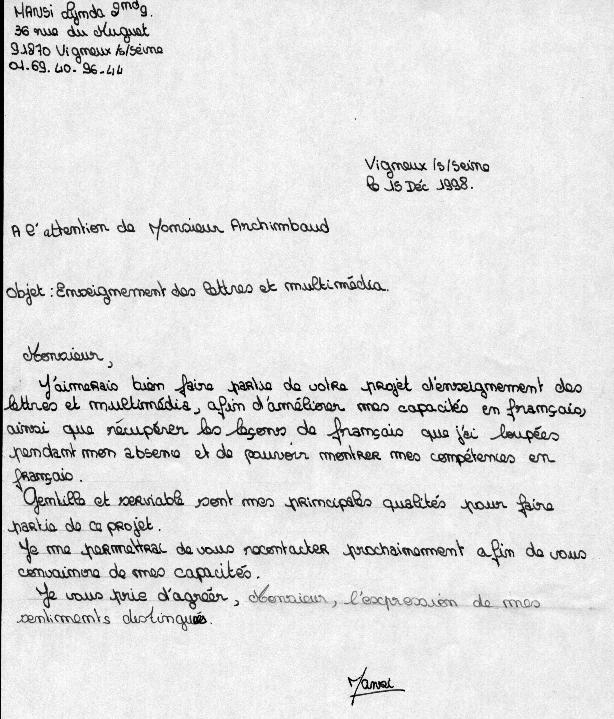 MANSI Lynda 2nd9.
36 rue du Muguet
91870 Vigneux/s/seine
01-69-40-96-44
Vigneux /s/seine
le 15 Déc 1998.
A l'attention de Monsieur Archimbaud
Objet : Enseignement des lettres et multimédia.
Monsieur,
J'aimerais bien faire partie de votre projet d'enseignement des
lettres et multimédia, afin d'améliorer mes capacités en français,
ainsi que récupérer les leçons de français que j'ai loupées
pendant mon absence et de pouvoir montrer mes compétences en
français.
Gentille et serviable sont mes principales qualités pour faire
partie de ce projet.
Je me permettrai de vous recontacter prochainement afin de vous
convaincre de mes capacités.
Je vous prie d'agréer, Monsieur, l'expression de mes
sentiments distingués.
Mansi